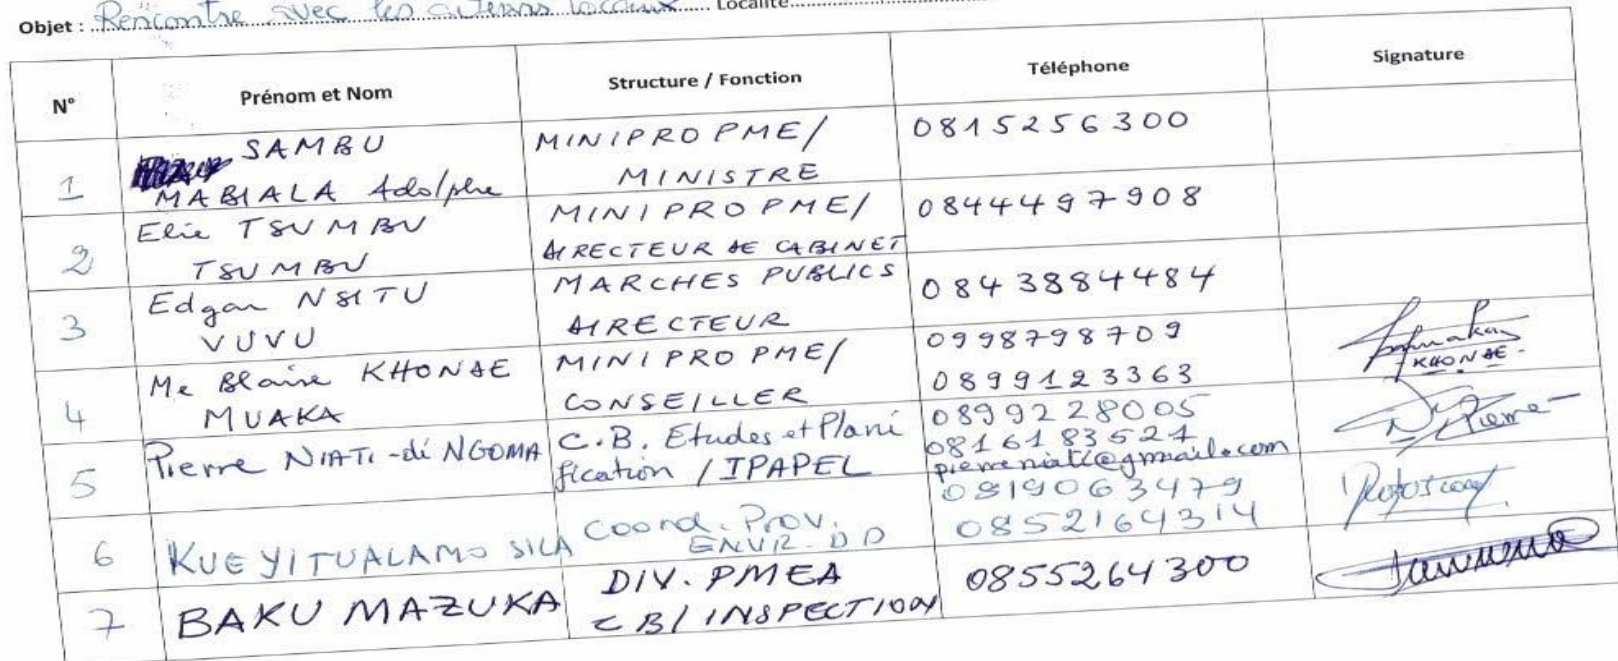 Objet : Rencontre avec les acteurs locaux Localité
N° Prénom et Nom Structure / Fonction Téléphone Signature
1 SAMBU MABIALA Adolphe MINIPRO PME/ MINISTRE 0815256300
2 Elie TSUMBU TSUMBU MINIPRO PME/ DIRECTEUR DE CABINET 0844497908
3 Edgar NSITU VUVU MARCHES PUBLICS DIRECTEUR 0843884484
4 Me Blaise KHONDE MUAKA MINIPRO PME/ CONSEILLER 0998798709 0899123363 KHONDE.
5 Pierre NIATI-di NGOMA C.B. Etudes et Plani fication / IPAPEL 0899228005 0816183521 pierreniati@gmail.com Pierre
6 KUEYITUALAMO SILA Coord. Prov. ENVIR. DD 0819063479 0852164314
7 BAKU MAZUKA DIV. PMEA CB/ INSPECTION 0855264300